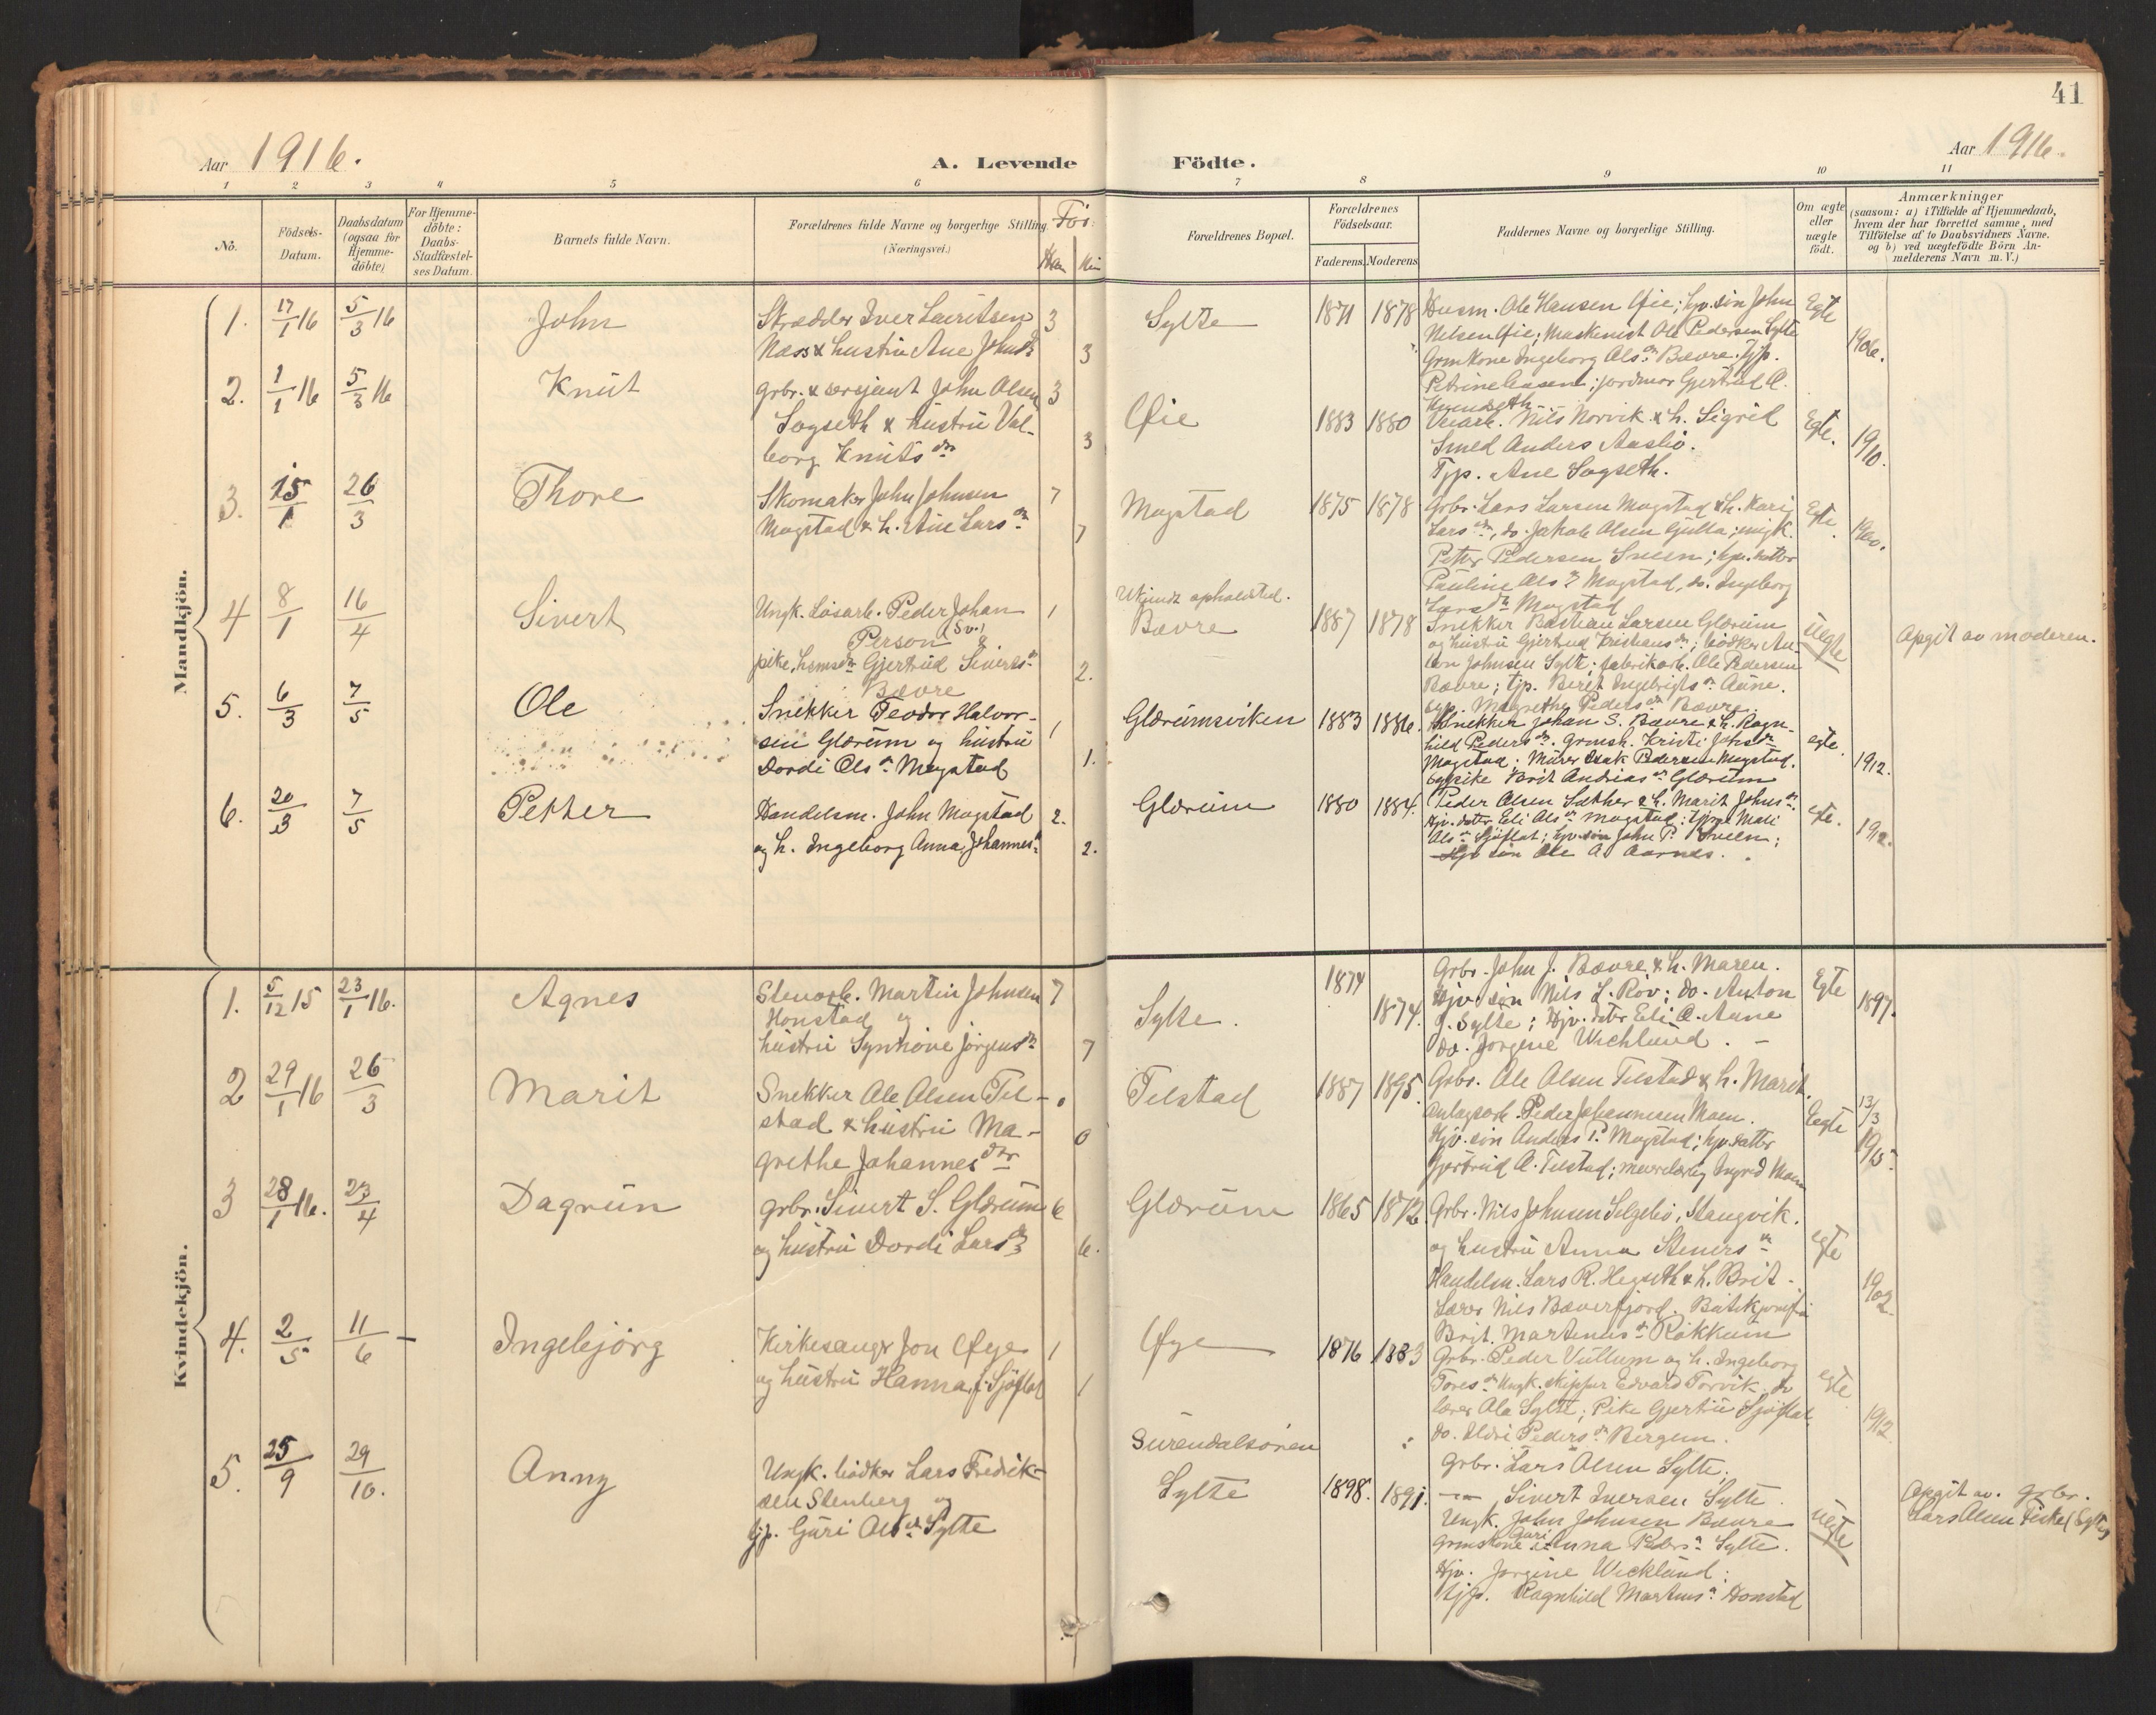 41
Aar 1916.
A. Levende Födte.
Aar 1916.
1 2 3 4 5 6 7 8 9 10 11
No.
Födsels-
Datum.
Daabsdatum
(ogsaa for
Hjemme-
döbte)
For Hjemme-
döbte:
Daabs-
Stadfæstel-
ses Datum.
Barnets fulde Navn.
Forældrenes fulde Navne og borgerlige Stilling.
(Næringsvei.)
Forældrenes Bopæl.
Forældrenes
Födselsaar.
Faderens. Moderens.
Faddernes Navne og borgerlige Stilling.
Om ægte
eller
uægte
født.
Anmærkninger
(saasom: a) i Tilfælde af Hjemmedaab,
hvem der har forrettet samme, med
Tilföielse af to Daabsvidners Navne.
og b) ved uægtefödte Börn An-
melderens Navn m. V.)
Mandkjön.
1. 17/1 16 5/3 16 John
Skrædder Iver Lauritsen 3
Næss & hustru Ane Johnsdr 3
Sylte 1871 1878
Husm. Ole Hansen Øie; hjv. søn John
Nilsen Øie; Maskinist Ole Pedersen Sylte
Grmkone Ingeborg Olsdr Bævre. Tjp.
Petrine ; jordmor Gjertrud O.
Egte 1906.
2. 1/1 16 5/3 16 Knut
Grbr. & sersjant John Olsen 3
Sogseth & hustru Val-
borg Knutsdr 3
Øie 1883 1880
Nils Norvik & h. Sigrid
Smed Anders Aasbø.
Tjp. Ane Sogseth.
Egte. 1910.
3. 15/1 26/3 Thore
Skomaker John Johnsen 7
Mogstad & h. Ane Larsdr 7
Mogstad 1875 1878
Grbr. Lars Larsen Mogstad & h. Kari
Larsdr, do. Jakob Olsen Gulla; ungk.
Peter Pedersen Sneen; hjv. datter
Pauline Olsdr Mogstad, do. Ingeborg
Larsdr Mogstad
Egte. 1900.
4 8/1 16/4 Sivert
Ungk. Løsarb. Peder Johan 1
Person (Sv.) &
pike, Gjertrud Sivertsdr 2.
Bævre
Ukjendt opholdsted.
Bævre 1887 1878
Snekker Bastian Larsen Glærum
og hustru Gjertrud Kristiansdr; bødker An-
ton Johnsen Sylte; fabrikarb. Ole Pedersen
Bævre; tjp. Berit Ingebrigtsdr Aune.
tjp. Magrethe Pedersdr Bævre.
Uegte
Opgit av moderen.
5. 6/3 7/5 Ole
Snekker Teodor Halvor-
sen Glærum og hustru 1
Dordi Olsdr Mogstad 1.
Glærumsviken 1883 1886.
Snekker Johan S. Bævre & h. Ragn-
hild Pedersdr. Grmsk. Kristi Johsdr
Mogstad; Murer Isak Pedersen Mogstad.
Tjpike Brit Andriasdr Glærum
egte. 1912.
6. 20/3 7/5 Petter
Handelsm. John Mogstad 2.
og h. Ingeborg Anna Johannesdr 2.
Glærum 1880 1884.
Peder Olsen Sæther & h. Marit Johnsdr.
Hjv. datr. Eli Olsdr Mogstad; tjpge Mali
Olsdr Sjøflot; hjv. søn John P. Sneen;
Hjv søn Ole A. Aarnes.
egte. 1912.
Kvindekjön.
1. 5/12 15 23/1 16. Agnes
Stenarb. Martin Johnsen 7
Honstad og
hustru Synnøve Jørgensdr 7
Sylte. 1874 1874.
Grbr. John J. Bævre & h. Maren.
Hjv. søn Nils L. Røv; do. Anton
J. Sylte; Hjv. datr Eli O. Aune
do. Jørgine Wichlund. –
Egte 1897.
2 29/1 16 26/3 Marit
Snekker Ole Olsen Tel- 0
stad & hustru Ma- 0
grethe Johannesdtr
Telstad 1887 1895.
Grbr. Ole Olsen Telstad & h. Marit.
Anlægsarb. Peder Johannesen Moen.
Hjv. søn Anders P. Mogstad; hjv. datter
Gjertrud O. Telstad; Ingrid Moen
Eegte 13/3 1915
3 28/1 16. 23/4 Dagrun
grbr. Sivert S. Glærum 6
og hustru Dordi Larsdr 6.
Glærum 1865 1872.
Grbr. Nils Johnsen Selgebø, Stangvik.
og hustru Anna Steinersdr
Handelsm. Lars R. Hegseth & h. Brit.
Lærer Nils Bæverfjord.
Brit. Martinusdr Rökkum
egte 1902.
4. 2/5 11/6 – Ingebjörg
Kirkesanger Jon Øye 1
og hustru Hanna, f. Sjøflot 1
Øye 1876 1883
Grbr. Peder Vullum og h. Ingeborg
Toresdr Ungk. skipper Edvard Torvik. do
lærer Ola Sylte; Pike Gjertru Sjøflot
do. Ildri Pedersdr Bergem.
egte 1912
5. 25/9 29/10. Anny
Ungk. bødker Lars Fredrik-
sen Stenberg og
tjp. Guri Olsdr Sylte
Surendalsøren
Sylte 1898. 1891.
Grbr. Lars Olsen Sylte.
—"— Sivert Iversen Sylte.
Ungk. John Johnsen Bævre
Grmskone Anna Pedersdr Sylte.
Hjv. Jørgine Wicklund:
tjp. Ragnhild Martinusdr Honstad
uegte
Opgit av. grbr.
Lars Olsen Sylte